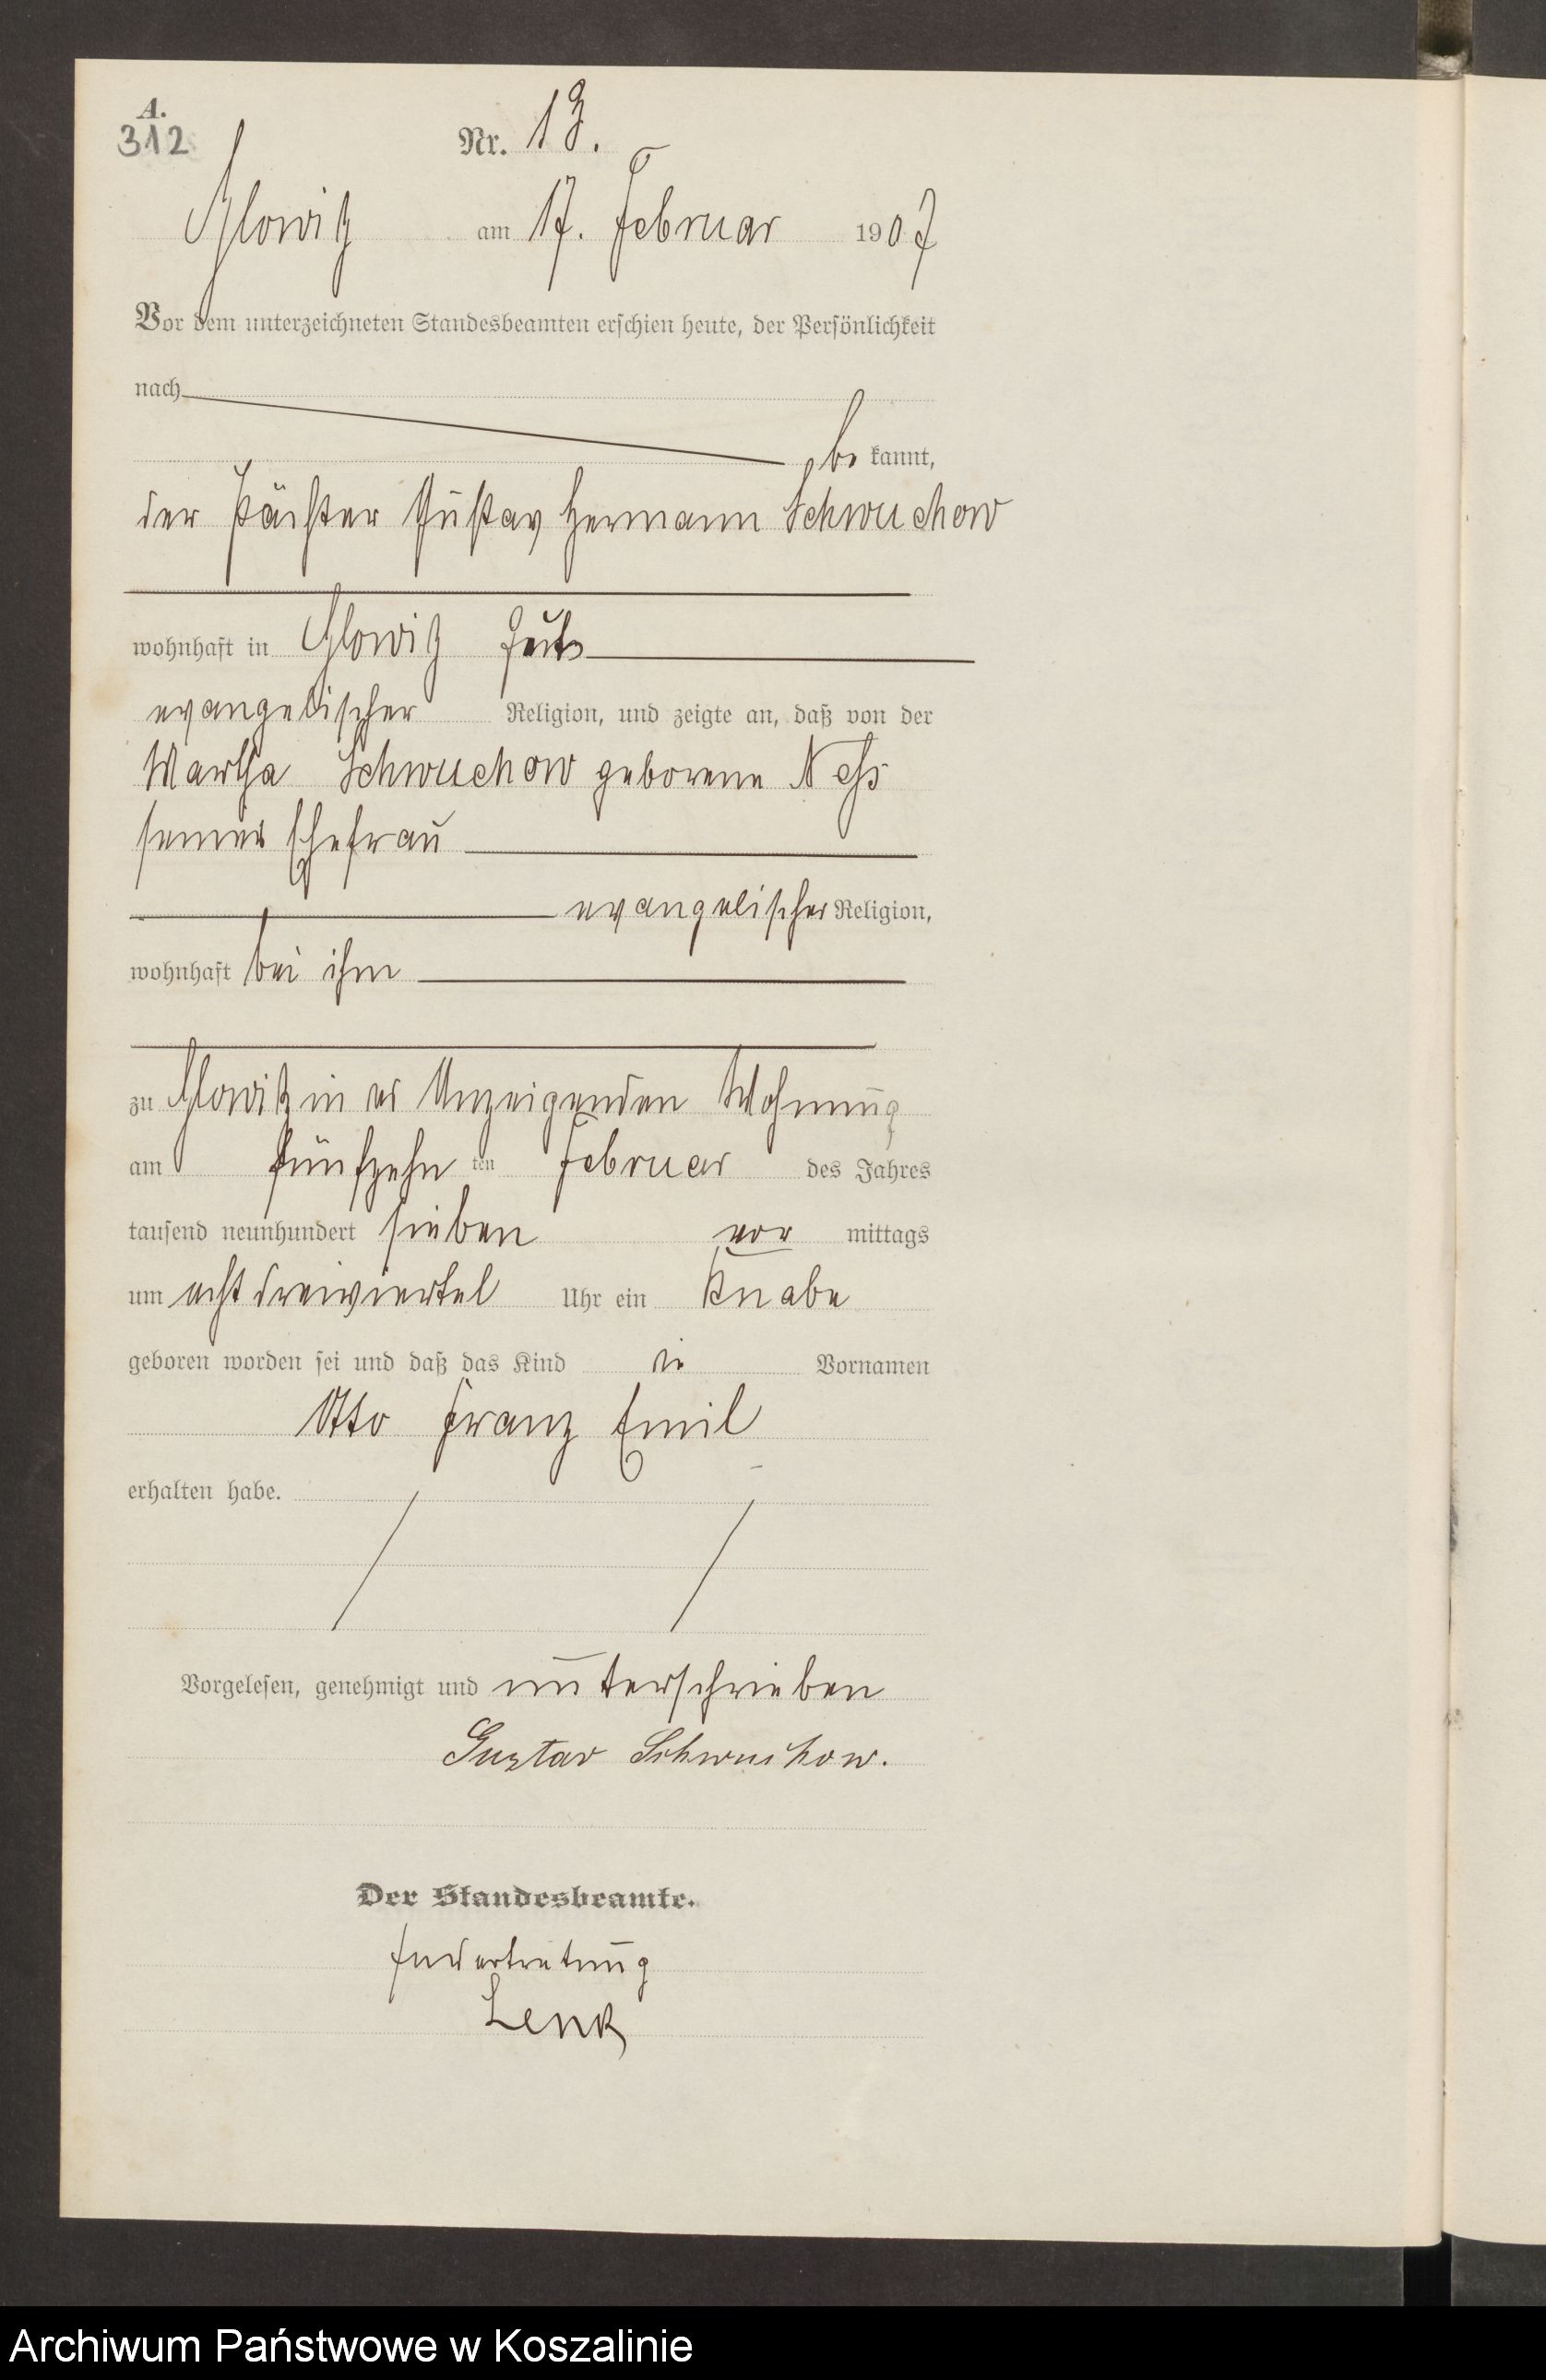 A.
312
Nr. 13.
Glowitz am 17. Februar 1907
Vor dem unterzeichneten Standesbeamten erschien heute, der Persönlichkeit
nach
be kannt,
der Pächter Gustav Hermann Schwuchow
wohnhaft in Glowitz
evangelischer Religion, und zeigte an, daß von der
Martha Schwuchow geborene
seiner Ehefrau
evangelischer Religion,
wohnhaft bei ihm
zu Glowitz in Anzeigenden Wohnung
am fünfzehn ten Februar des Jahres
tausend neunhundert sieben vor mittags
um acht dreiviertel Uhr ein Knabe
geboren worden sei und daß das Kind die Vornamen
Otto Franz Emil
erhalten habe.
Vorgelesen, genehmigt und unterschrieben
Gustav Schwuchow.
Der Standesbeamte.
In Vertretung
Lenk
Archiwum Państwowe w Koszalinie